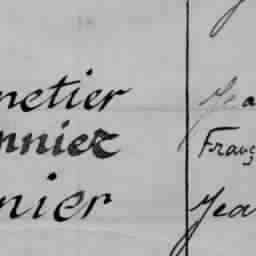 netier Jea
nnier Franç
nier Jea